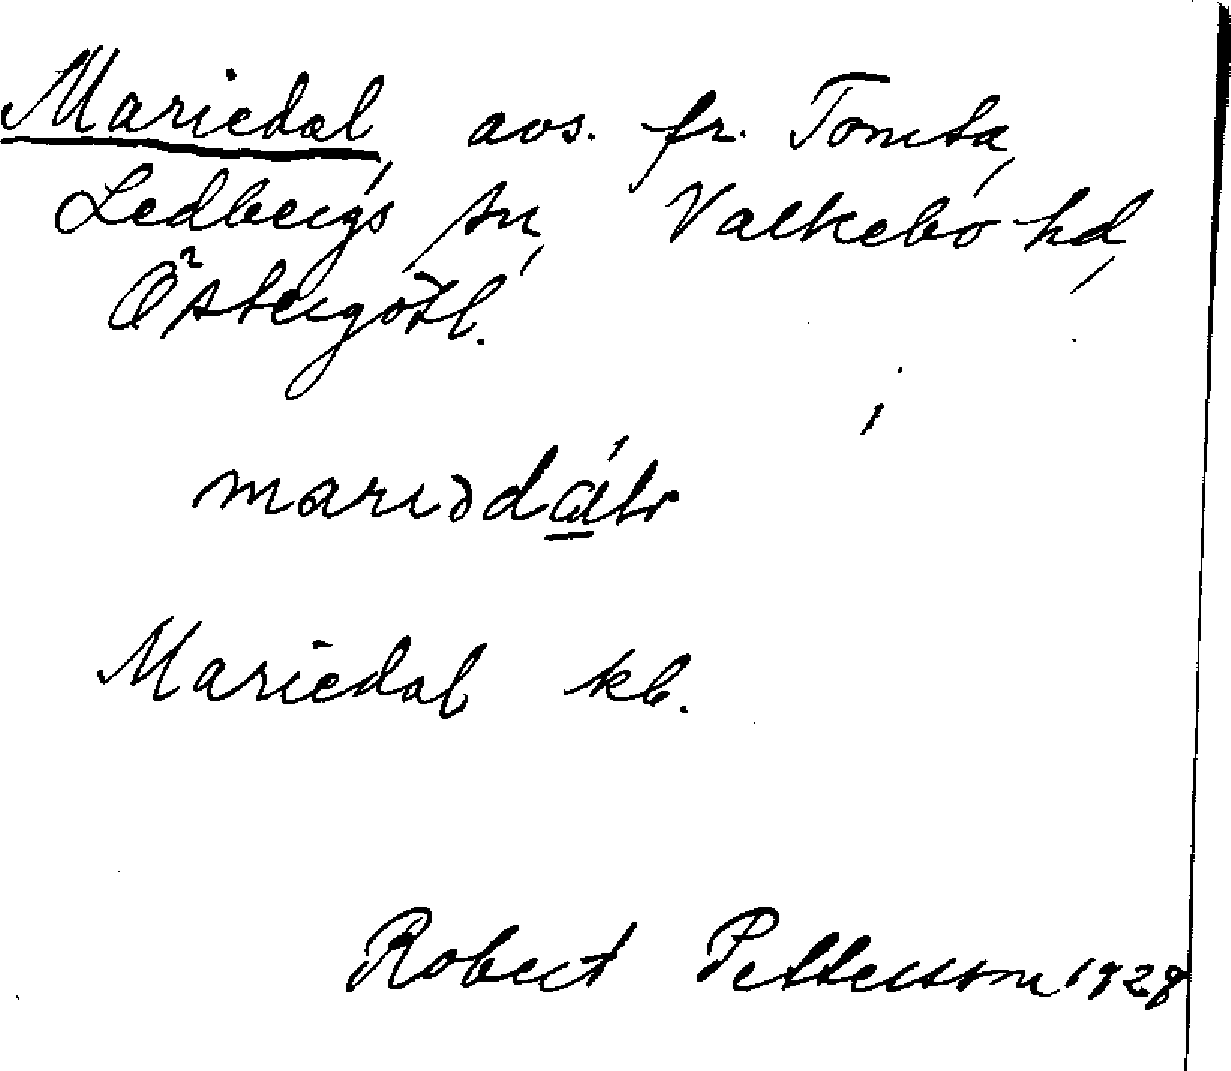 Mariedal, avs. fr. Tomta,
Ledbergs sn, Valkebo hd,
Östergötl.
Mariedal kb.
Robert Pettersson 1928